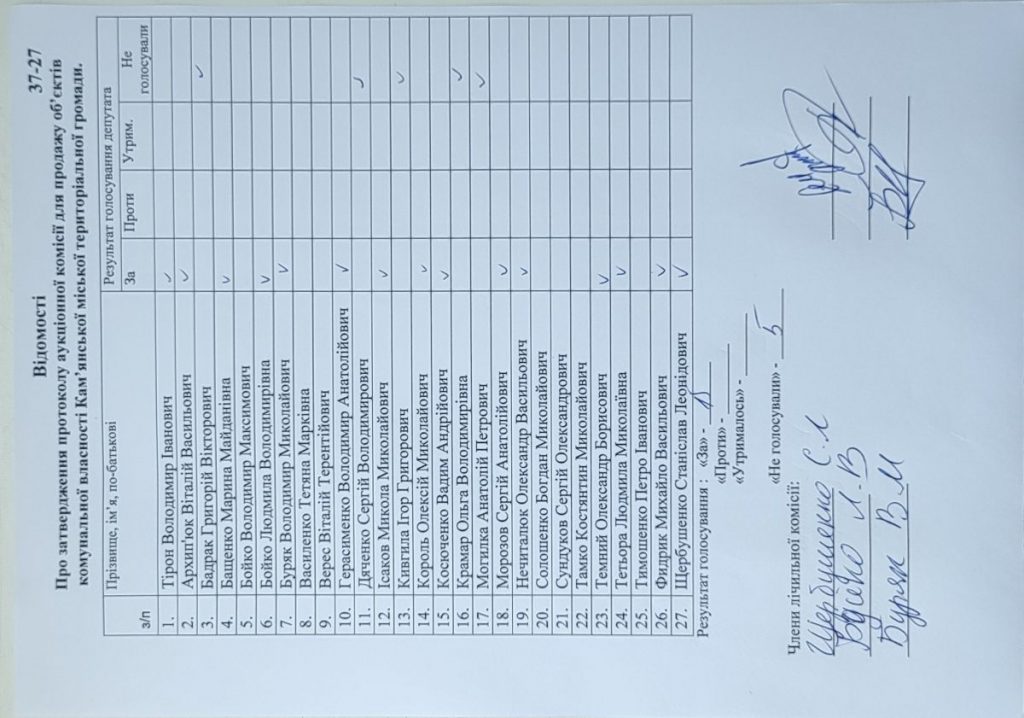 Відомості
37-27
Про затвердження протоколу аукціонної комісії для продажу об'єктів
комунальної власності Кам'янської міської територіальної громади.
з/п Прізвище, ім'я, по-батькові Результат голосування депутата
За Проти Утрим. Не голосували
1. Тірон Володимир Іванович ✓
2. Архип'юк Віталій Васильович ✓
3. Бадрак Григорій Вікторович ✓
4. Бащенко Марина Майданівна ✓
5. Бойко Володимир Максимович
6. Бойко Людмила Володимирівна ✓
7. Буряк Володимир Миколайович ✓
8. Василенко Тетяна Марківна
9. Верес Віталій Терентійович
10. Герасименко Володимир Анатолійович ✓
11. Дяченко Сергій Володимирович ✓
12. Ісаков Микола Миколайович ✓
13. Кивгила Ігор Григорович ✓
14. Король Олексій Миколайович ✓
15. Косюченко Вадим Андрійович ✓
16. Крамар Ольга Володимирівна ✓
17. Могилка Анатолій Петрович ✓
18. Морозов Сергій Анатолійович ✓
19. Нечиталюк Олександр Васильович ✓
20. Солошенко Богдан Миколайович
21. Сундуков Сергій Олександрович
22. Тамко Костянтин Миколайович
23. Темний Олександр Борисович ✓
24. Тетьора Людмила Миколаївна ✓
25. Тимошенко Петро Іванович
26. Фидрик Михайло Васильович ✓
27. Щербушенко Станіслав Леонідович ✓
Результат голосування : «За» -
«Проти» -
«Утрималось» -
«Не голосували» - 5
Члени лічильної комісії:
Щербушенко С.Л
Бойко Л.В
Буряк В М